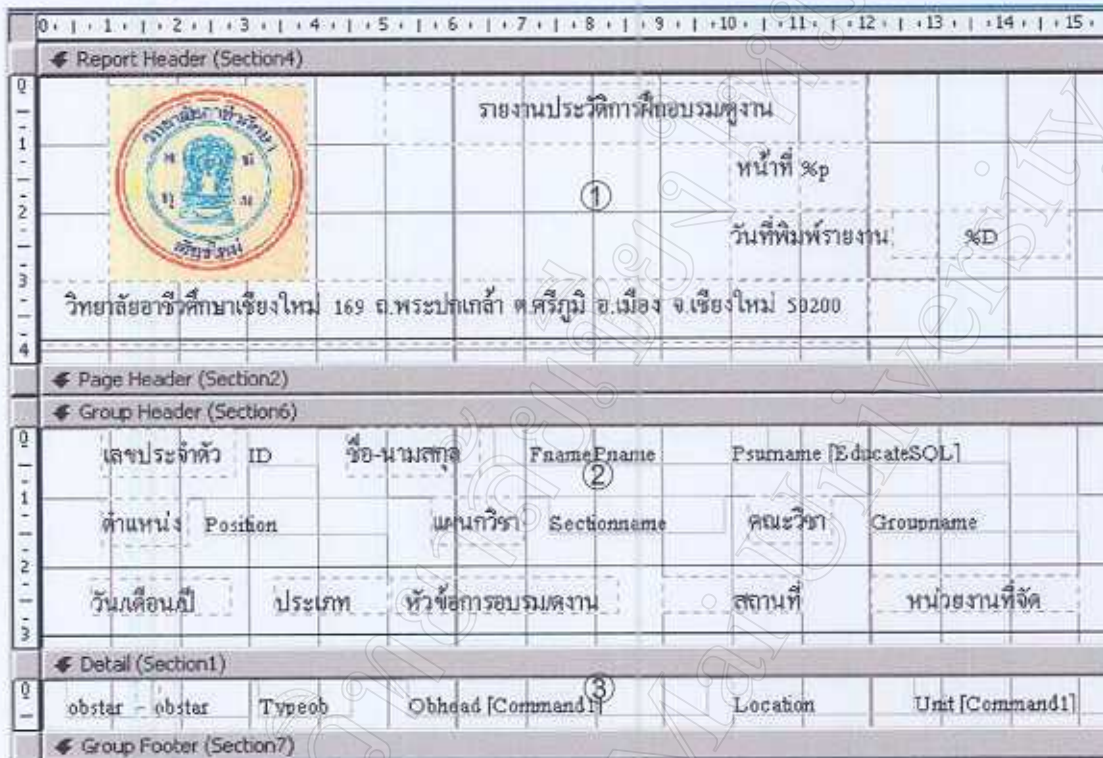 0 1 2 3 4 5 6 7 8 9 10 11 12 13 14 15
Report Header (Section4)
รายงานประวัติการฝึกอบรม/ดูงาน
หน้าที่ %p
①
วันที่พิมพ์รายงาน %D
วิทยาลัยอาชีวศึกษาเชียงใหม่ 169 ถ.พระปกเกล้า ต.ศรีภูมิ อ.เมือง จ.เชียงใหม่ 50200
Page Header (Section2)
Group Header (Section6)
เลขประจำตัว ID ชื่อ-นามสกุล FnamePname Psurname [EducateSQL]
②
ตำแหน่ง Position แผนกวิชา Sectionname คณะวิชา Groupname
วัน/เดือน/ปี ประเภท หัวข้อการอบรม/ดูงาน สถานที่ หน่วยงานที่จัด
Detail (Section1)
③
obstar - obstar Typeob Obhead [Command1] Location Unit [Command1]
Group Footer (Section7)